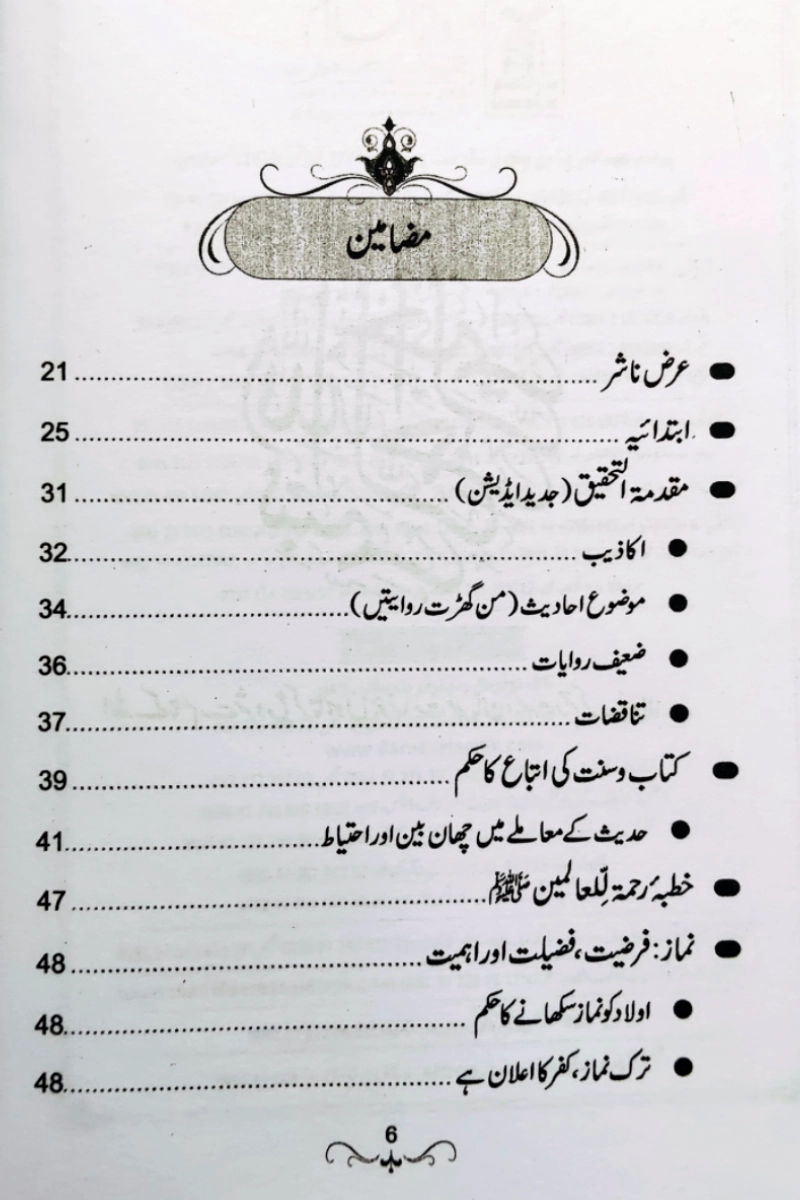 مضامین
عرض ناشر ........ 21
ابتدائیہ ........ 25
مقدمۃ التحقیق (جدید ایڈیشن) ........ 31
اکاذیب ........ 32
موضوع احادیث (من گھڑت روایتیں) ........ 34
ضعیف روایات ........ 36
تناقضات ........ 37
کتاب وسنت کی اتباع کا حکم ........ 39
حدیث کے معاملے میں چھان بین اور احتیاط ........ 41
خطبۂ رحمۃ لِّلعالمین ﷺ ........ 47
نماز: فرضیت، فضیلت اور اہمیت ........ 48
اولاد کو نماز سکھانے کا حکم ........ 48
ترک نماز، کفر کا اعلان ہے ........ 48
6